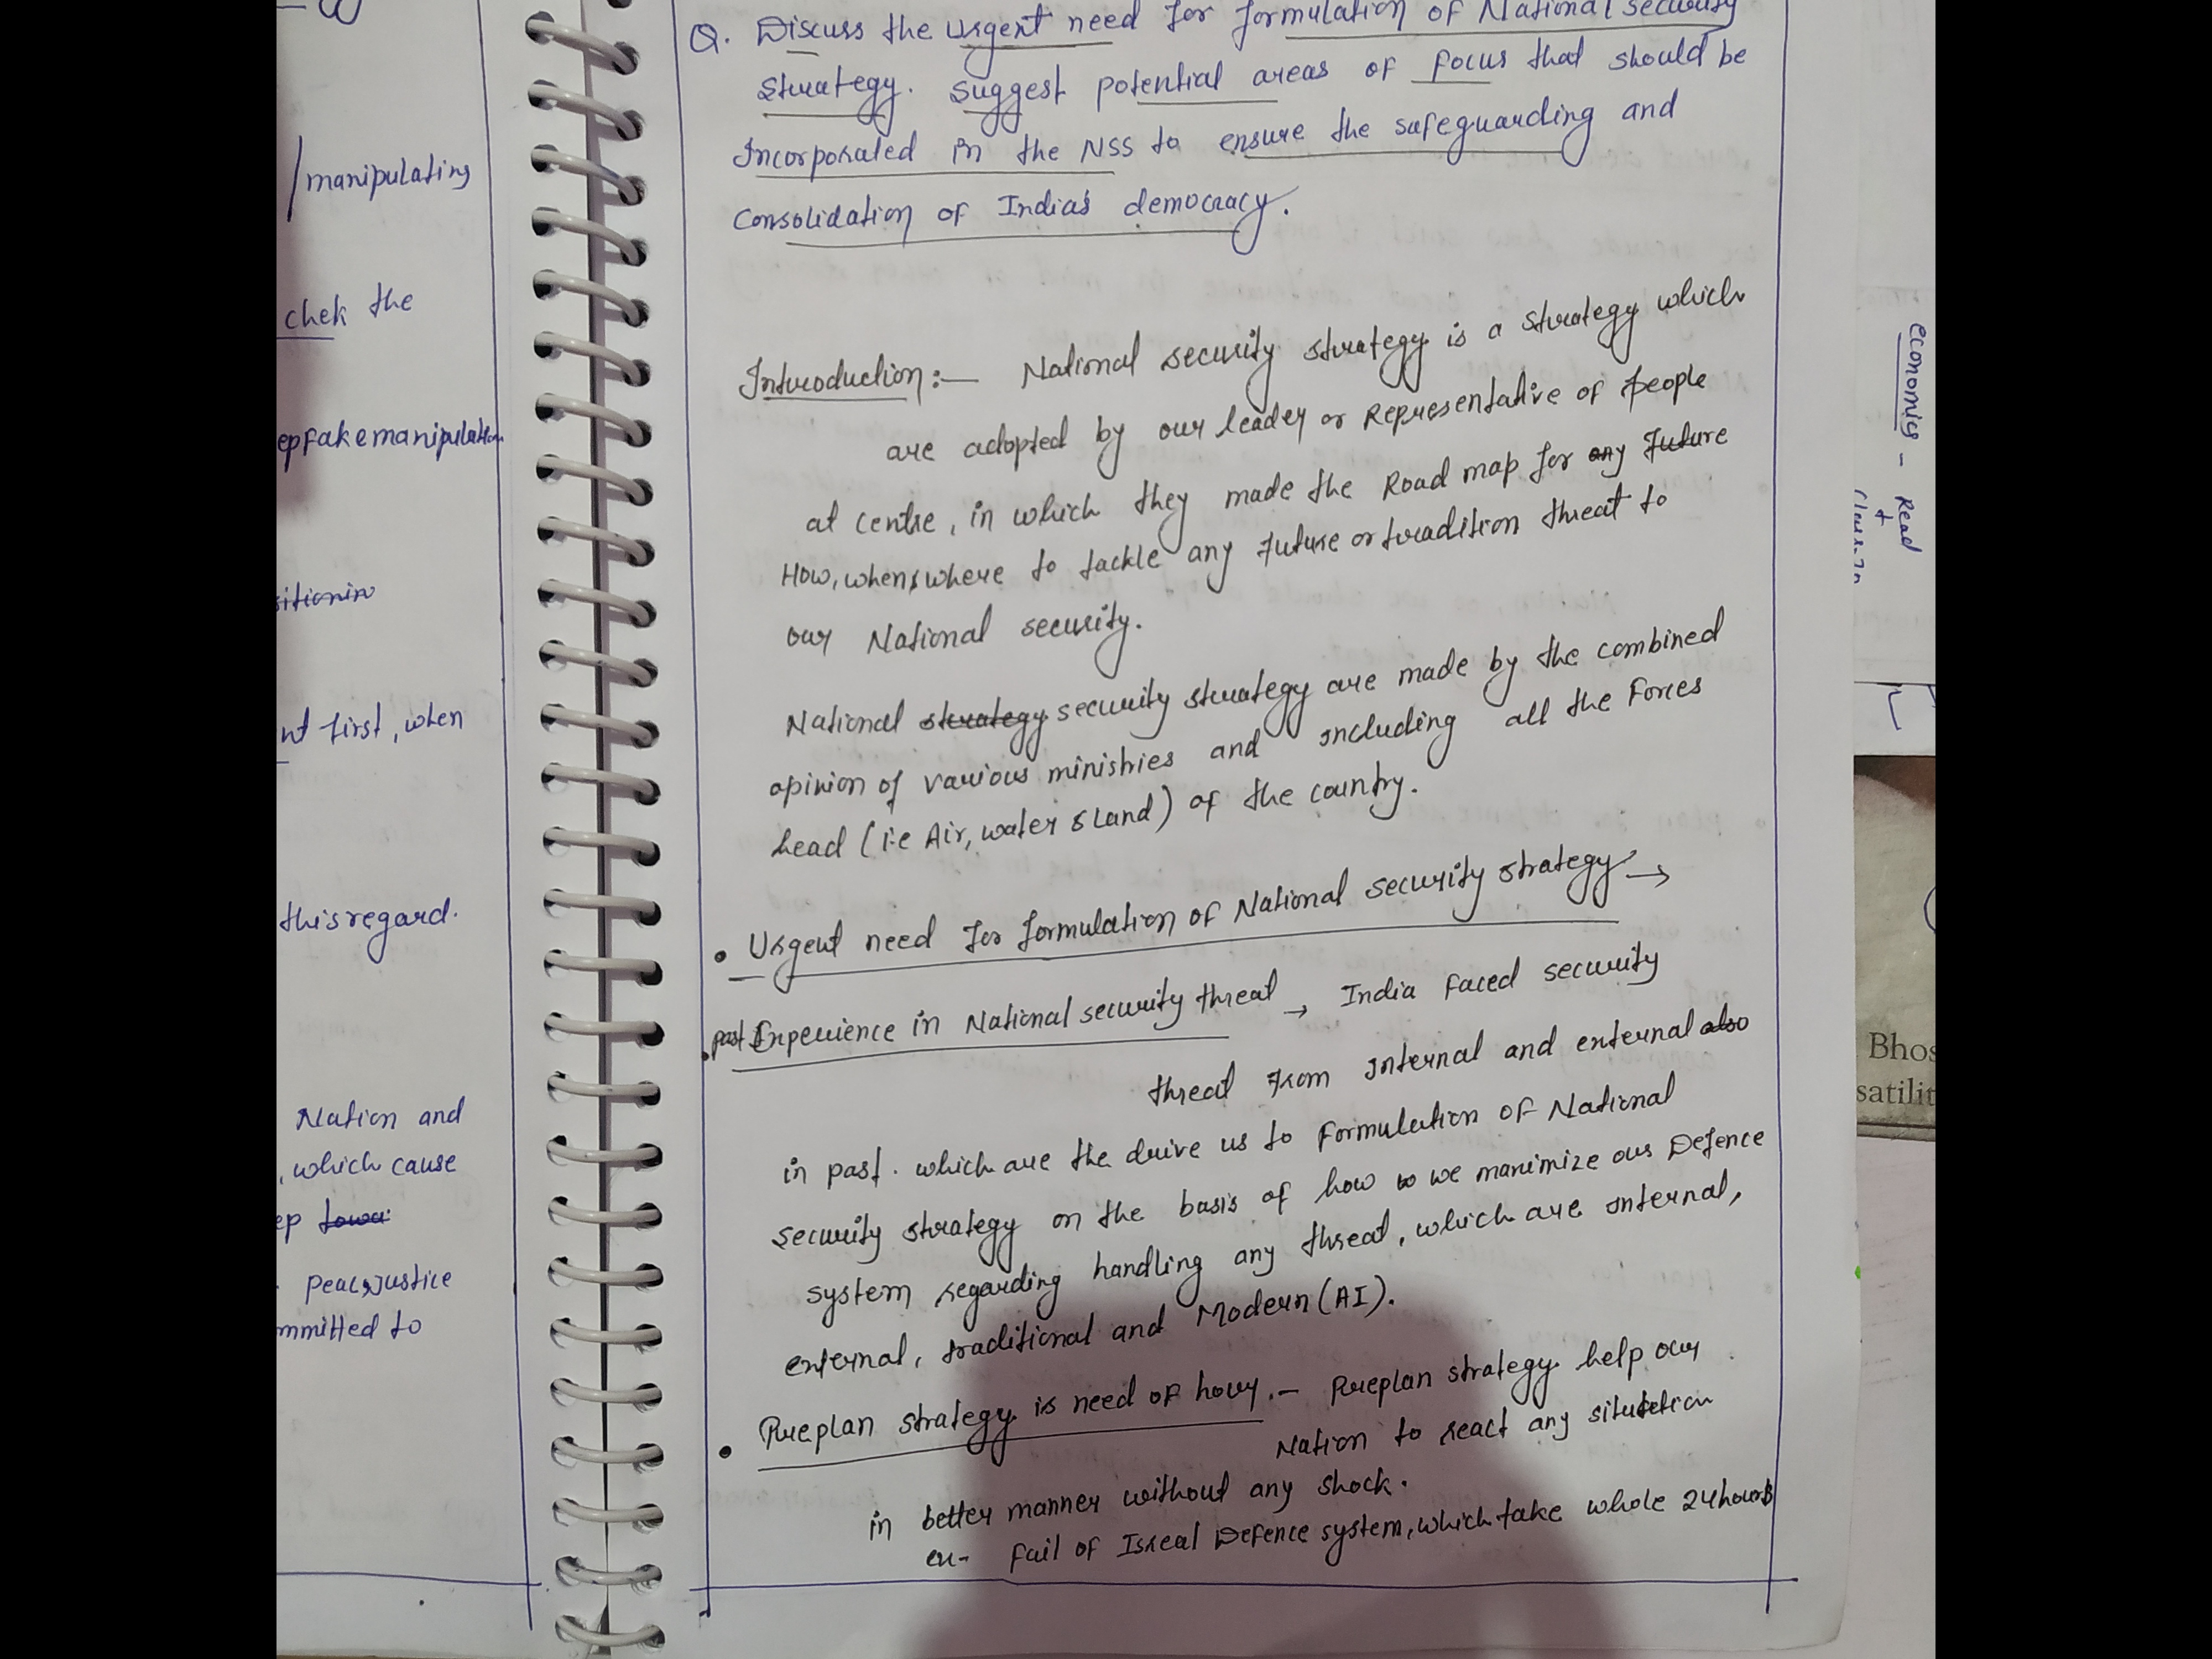 manipulating
chek the
epfake manipulation
sitionin
nt first, when
this regard.
Nation and
, which cause
ep towa
Peace, Justice
mmitted to
Q. Discuss the urgent need for formulation of National security
strategy. Suggest potential areas of focus that should be
Incorporated in the NSS to ensure the safeguarding and
consolidation of India's democracy.
Introduction:- National security strategy is a strategy which
are adopted by our leader or Representative of people
at centre, in which they made the Road map for any Future
How, when & where to tackle any future or tradition threat to
our National security.
National strategy security strategy are made by the combined
opinion of various ministries and including all the forces
head (i.e Air, water & Land) of the country.
• Urgent need for formulation of National security strategy →
• past Experience in National security threat → India faced security
threat from internal and external also
in past. which are the drive us to Formulation of National
security strategy on the basis of how to we maximize our Defence
system regarding handling any threat, which are internal,
external, traditional and Modern (AI).
• Preplan strategy is need of hour.- Preplan strategy help our
Nation to react any situation
in better manner without any shock.
ex- fail of Isreal Defence system, which take whole 24 hours
economics - Read
+
Bhos
satilit